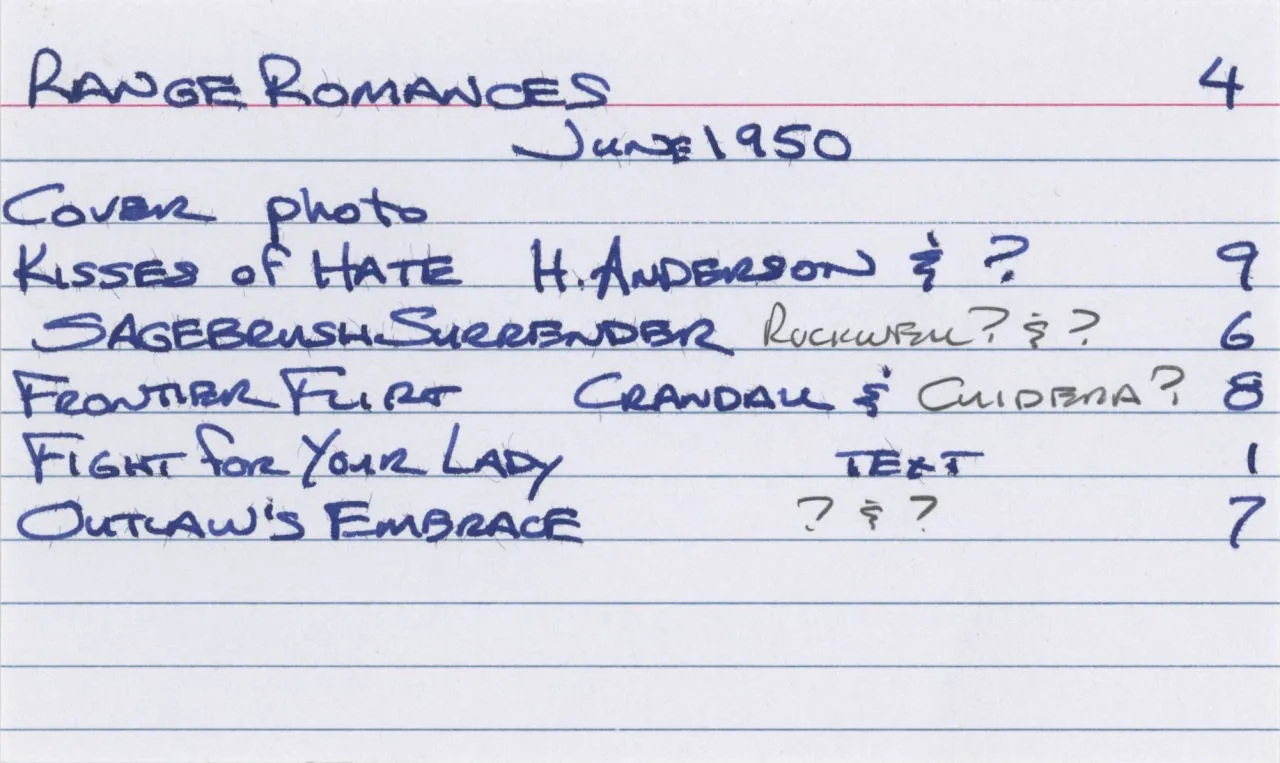 RANGE ROMANCES 4
JUNE 1950
COVER photo
KISSES of HATE H. ANDERSON & ? 9
SAGEBRUSH SURRENDER ROCKWELL? & ? 6
FRONTIER FLIRT CRANDALL & CUIDERA? 8
FIGHT for YOUR LADY TEXT 1
OUTLAW'S EMBRACE ? & ? 7